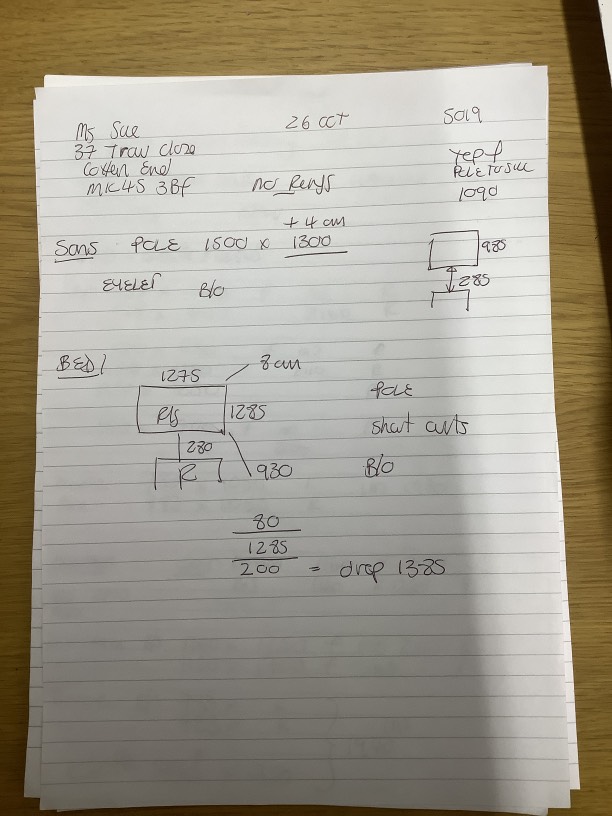 Ms Sue 26 OCT 5019
37 Traw Close
Cotten End
MK45 3BF no Renys
POLE TO Sill
1090
Sons POLE 1500 x 1300
+ 4 cm
985
285
EYELET B/O
BED 1
8 cm
1275
1285
280
R
930
POLE
short curts
B/O
80
1285
200 = drop 1385